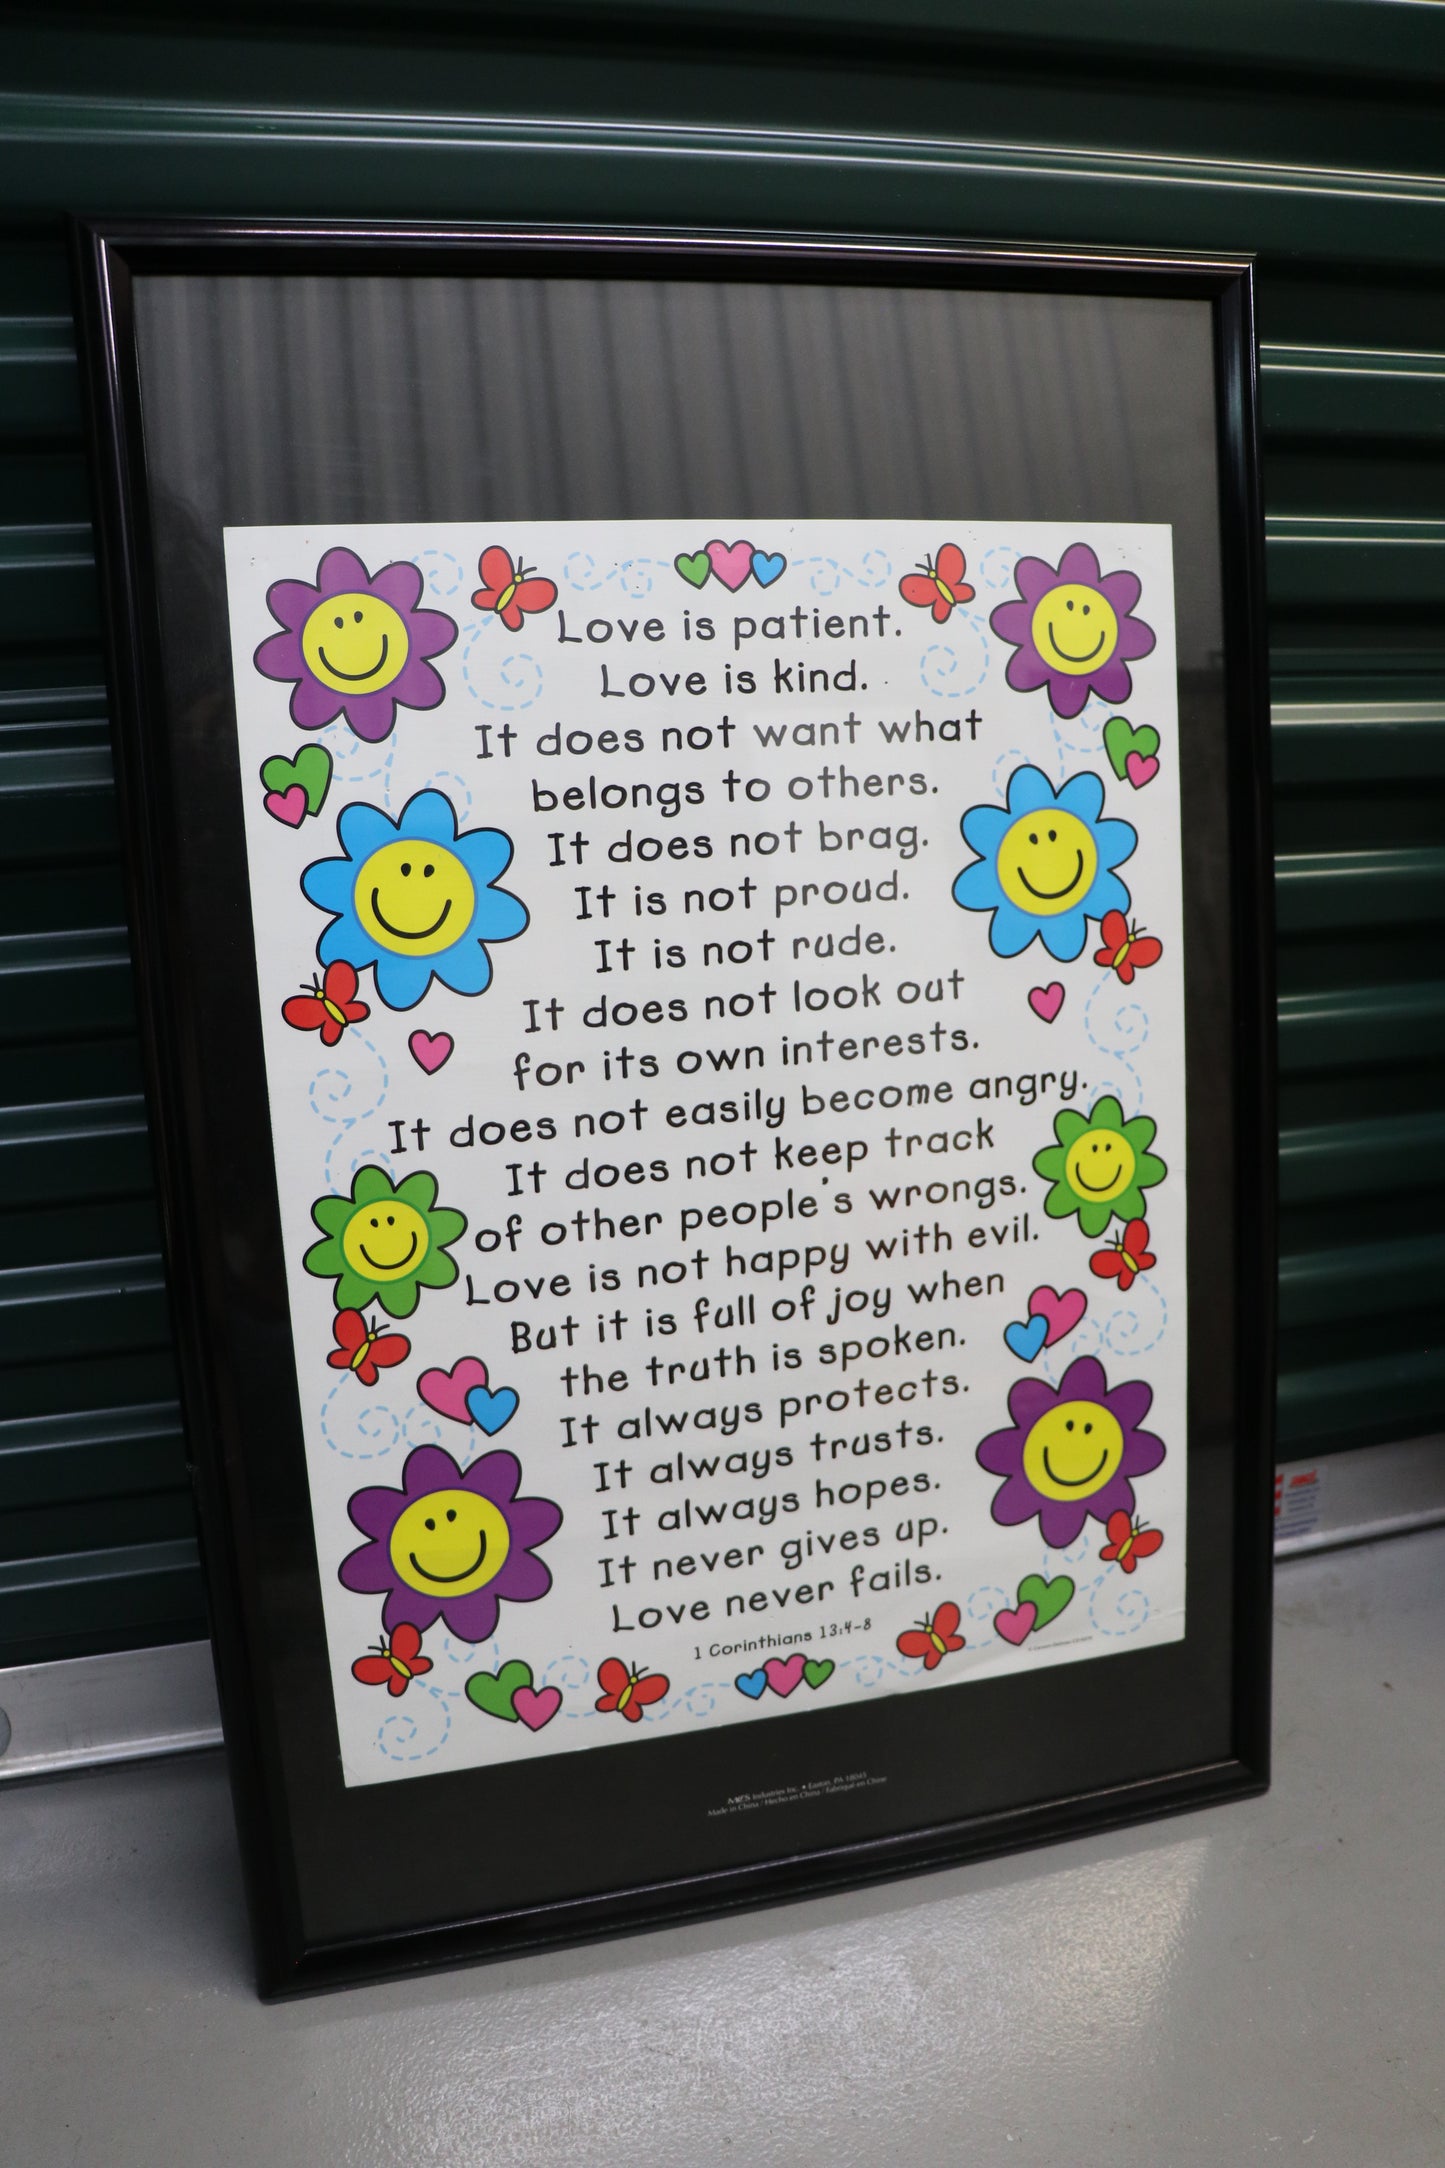 Love is patient.
Love is kind.
It does not want what
belongs to others.
It does not brag.
It is not proud.
It is not rude.
It does not look out
for its own interests.
It does not easily become angry.
It does not keep track
of other people's wrongs.
Love is not happy with evil.
But it is full of joy when
the truth is spoken.
It always protects.
It always trusts.
It always hopes.
It never gives up.
Love never fails.
1 Corinthians 13:4-8
MCS Industries Inc. • Easton, PA 18045
Made in China / Hecho en China / Fabriqué en Chine